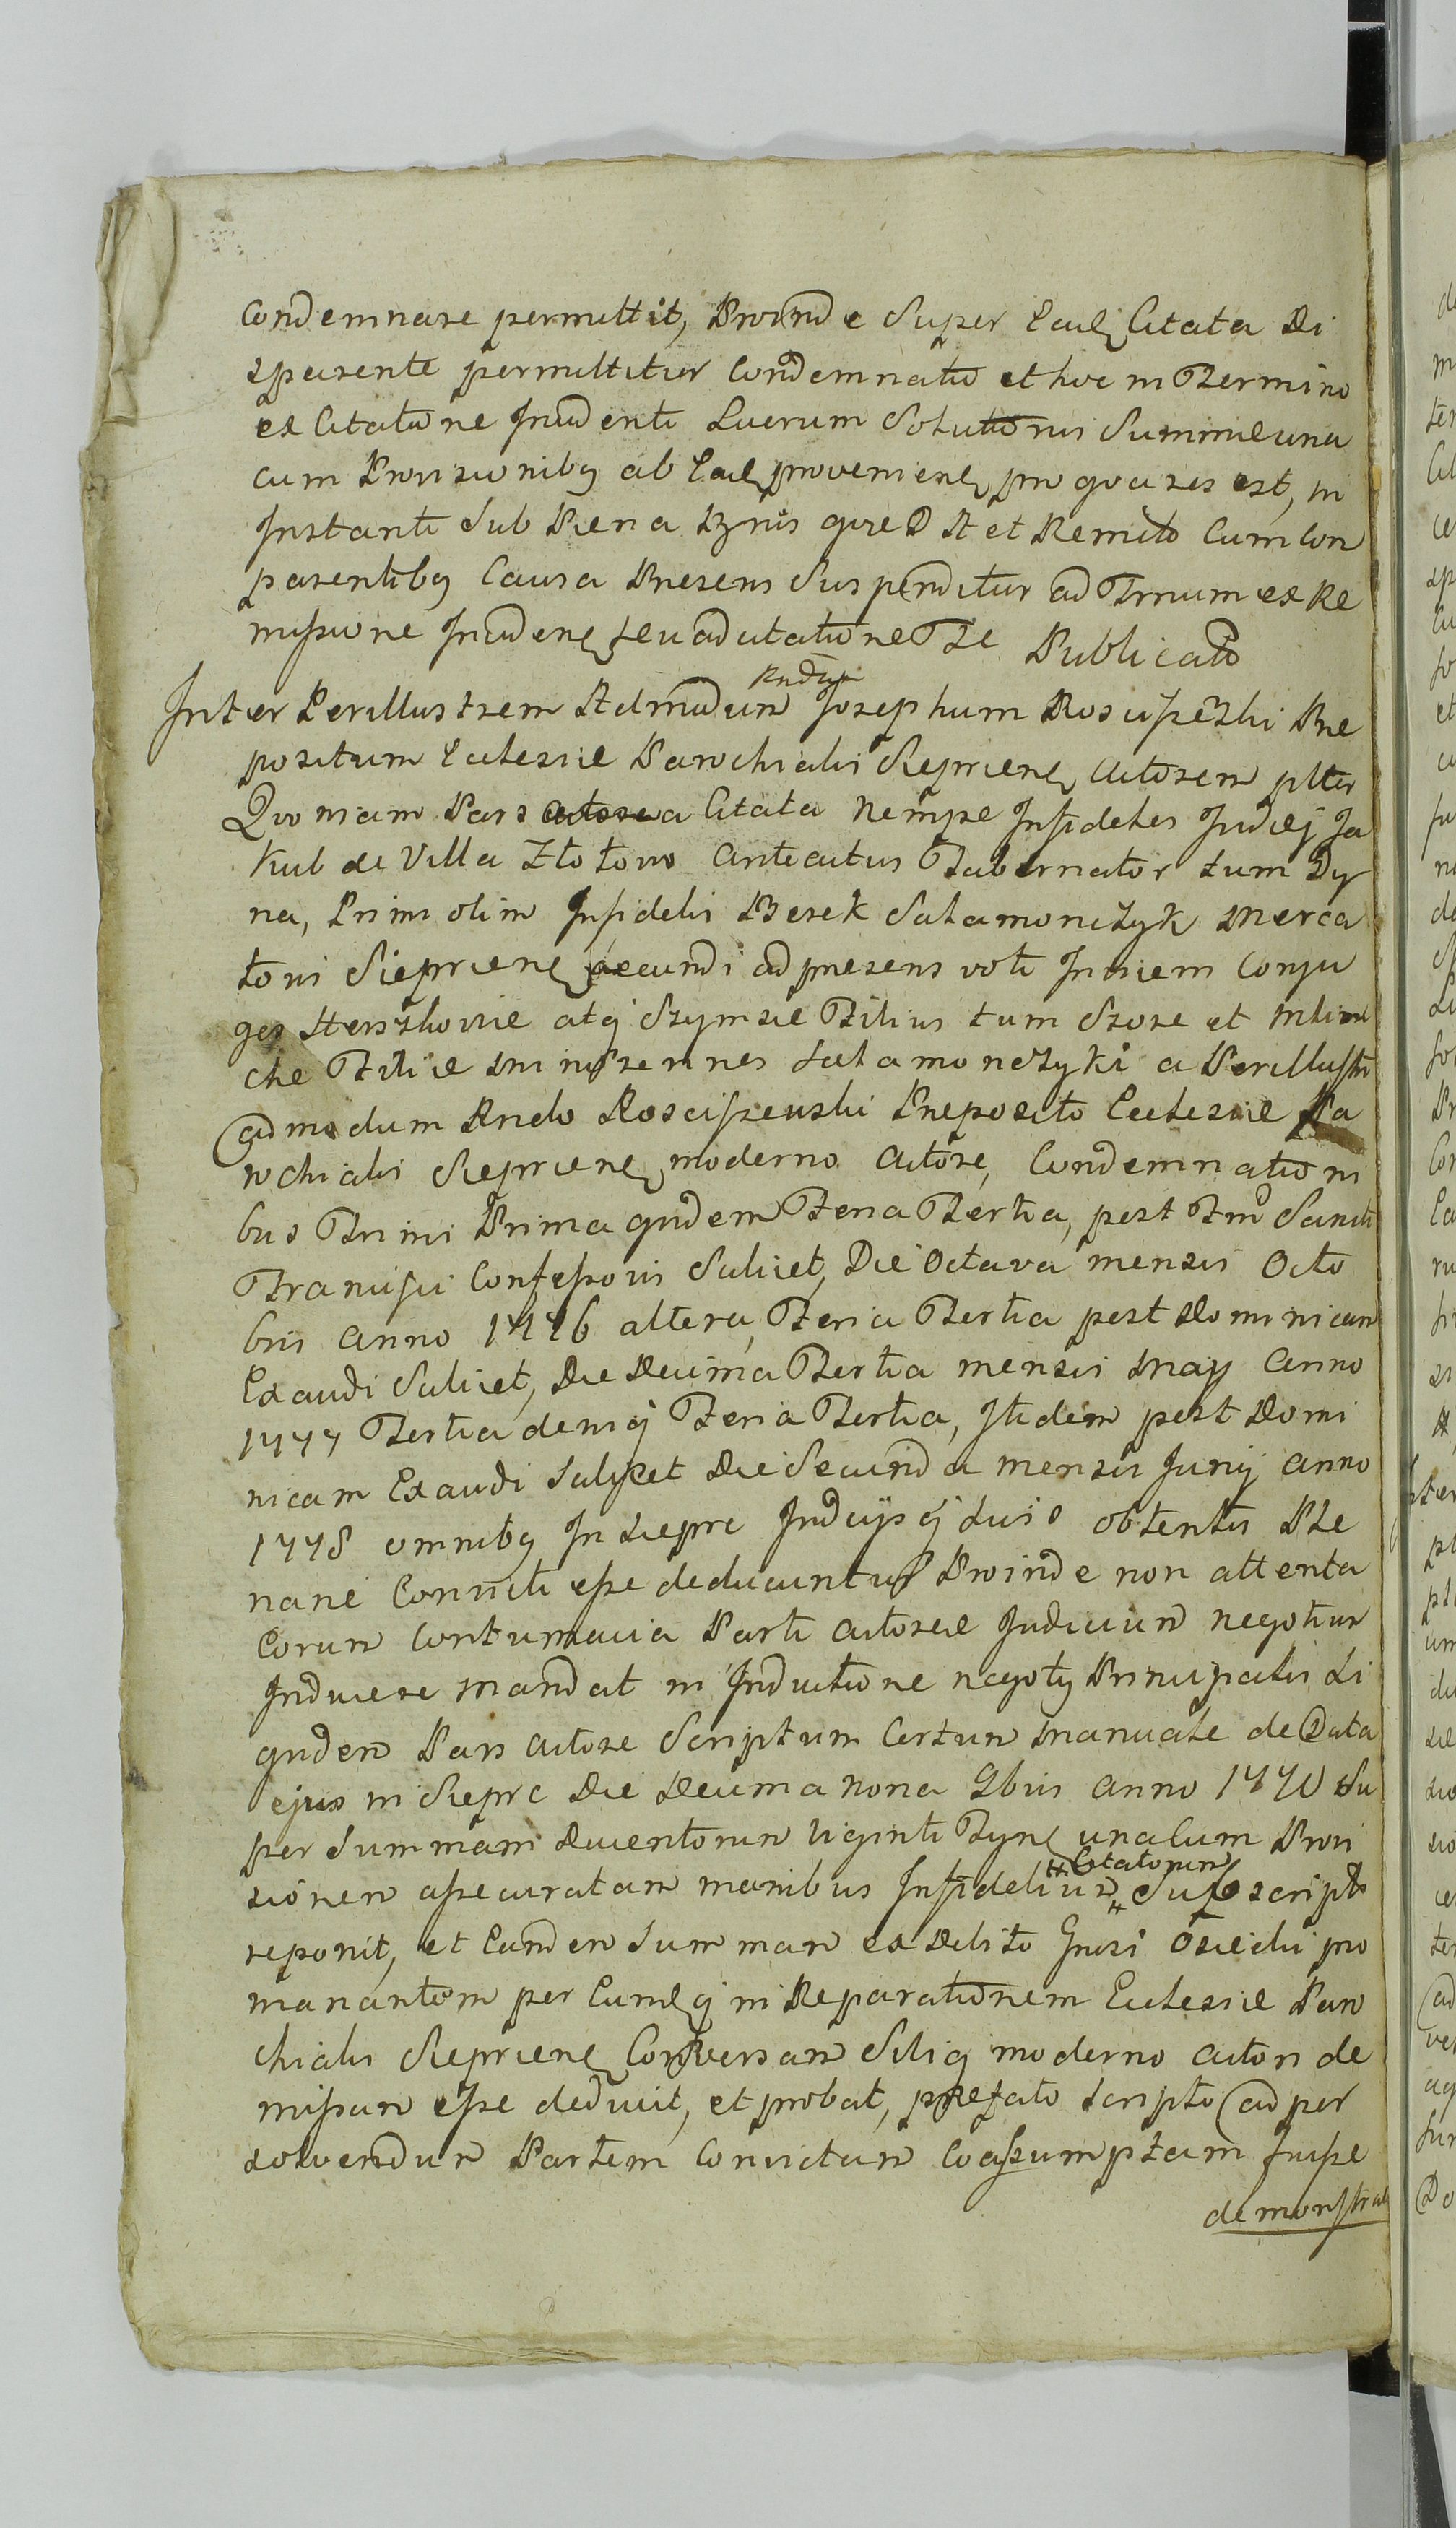 condemnare permittit, Proinde Super Ead Citata Di
sparente permittitur Condemnatio et hoc in Termino
ex Citatione Incidenti Lucrum Solutionis Summæ una
cum Provisionibq ab Ead proveniene pro qva res est, in
Instanti Sub Pæna Bnis
parentibq Causa Presens Suspenditur ad Trnum ex Re
missione Inciden seu ad citatione Publicato
Inter Perillustrem Admodum Rndum Josephum Rosciszewski Præ
positum Ecclesiæ Parochialis Sieprcen Actorem
Quoniam Pars a Citata Nempe Infideles Judæj Ja
kub de Villa Złotowo Antiatus Tabernator tum Dy
na, Primi olim Infidelis Berek Salamonczyk Merca
toris Sieprcen secundi ad presens voti Iniciem Conju
ges Herszkowie atq Szymsie Filius tum Szore et
che Filiæ Minorennes Salamonczyki a Perillustri
admodum Rndo Rosciszewski Præposito Ecclesiæ Pa
rochialis Sieprcen moderno Actore, Condemnationi
bus Trini Prima qudem Feria Tertia, post Fm Sancti
Francisci Confessoris Scilicet, Die Octava mensis Octo
bris Anno 1776 altera, Feria Tertia post Dominicam
Exaudi Scilicet, Die Decima Tertia mensis Maij Anno
1777 Tertia deniq Feria Tertia, Itidem post Domi
nicam Exaudi Scilicet Die Secunda mensis Junij Anno
1778 omnibq In Siepre Judicijsq Suis obtentis Ple
narie Convicti esse deducuntur Proinde non attenta
Eorum Contumacia Parti Actoreæ Judicium negotium
Inducere Mandat in Inductione negotij Principalis Li
quden Pars Actore Scriptum Certum Manuale de Data
ejus in Siepre Die Decima Nona 9bris Anno 1770 Su
per Summam Ducentorum Viginti Tynf una Cum Provi
sionem assecuratam manibus Infidelium # Citatorum # Subscript
reponit, et Eandem Summam ex Debito Grosi Osiecki pro
manantem per Eundq in Reparationem Ecclesiæ Paro
chialis Sieprcen Conversam Sibiq moderno Actori de
missam esse deducit, et probat, præfato Scripto ad per
solvendum Partem Convictam Coassumptam fuisse
demonstrat